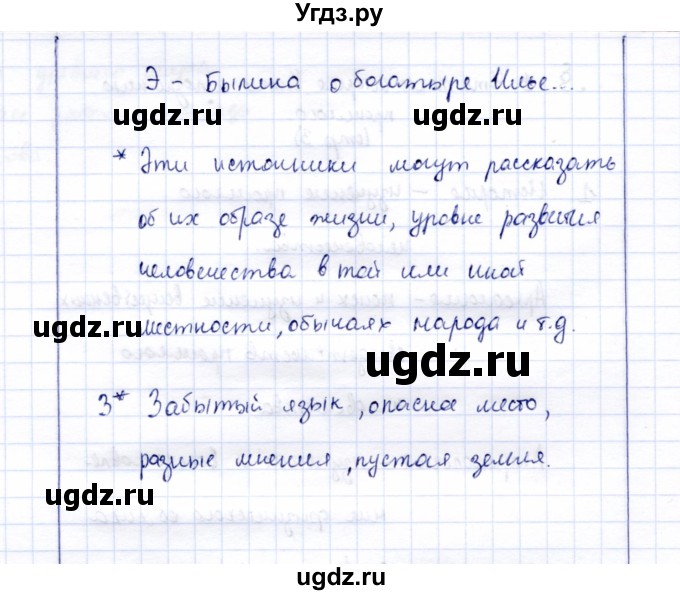 Угдз.ру
Э - Былина о богатыре Илье...
ugdz.ru ugdz.ru
* Эти источники могут рассказать
об их образе жизни, уровне развития
человечества в той или иной
местности, обычаях народа и т.д.
ugdz.ru ugdz.ru
ugdz.ru
3* Забытый язык, опасное место,
разные мнения, пустая земля.
ugdz.ru ugdz.ru
ugdz.ru